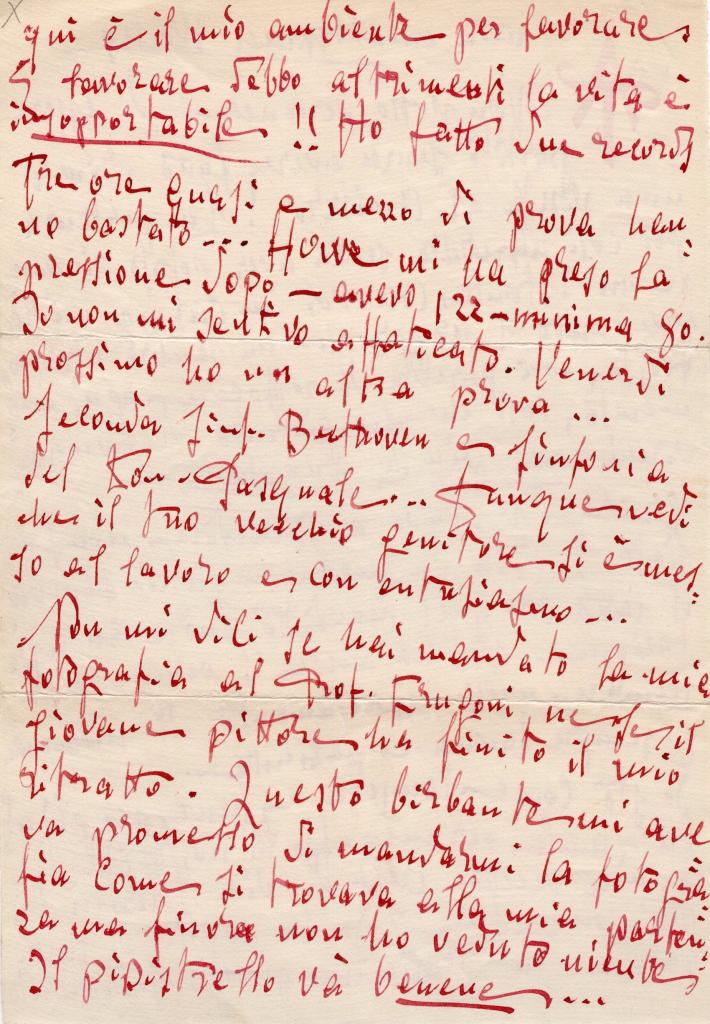 qui è il mio ambiente per lavorare,
E lavorare debbo altrimenti la vita è
insopportabile !! Ho fatto due records
Tre ore quasi e mezzo di prova han-
no bastato... Howe mi ha preso la
pressione dopo — avevo 122 — minima 80.
Io non mi sentivo affaticato. Venerdì
prossimo ho un altra prova ...
Seconda Sinf. Beethoven e sinfonia
del Don Pasquale... Dunque vedi
che il tuo vecchio genitore si è mes-
so al lavoro e con entusiasmo ...
Non mi dici se hai mandato la mia
fotografia al Prof. Frugoni ne se il
giovane pittore ha finito il mio
ritratto. Questo birbante mi ave
va promesso di mandarmi la fotogra-
fia come si trovava alla mia parten-
za ma finora non ho veduto niente
Il pipistrello và benene ...